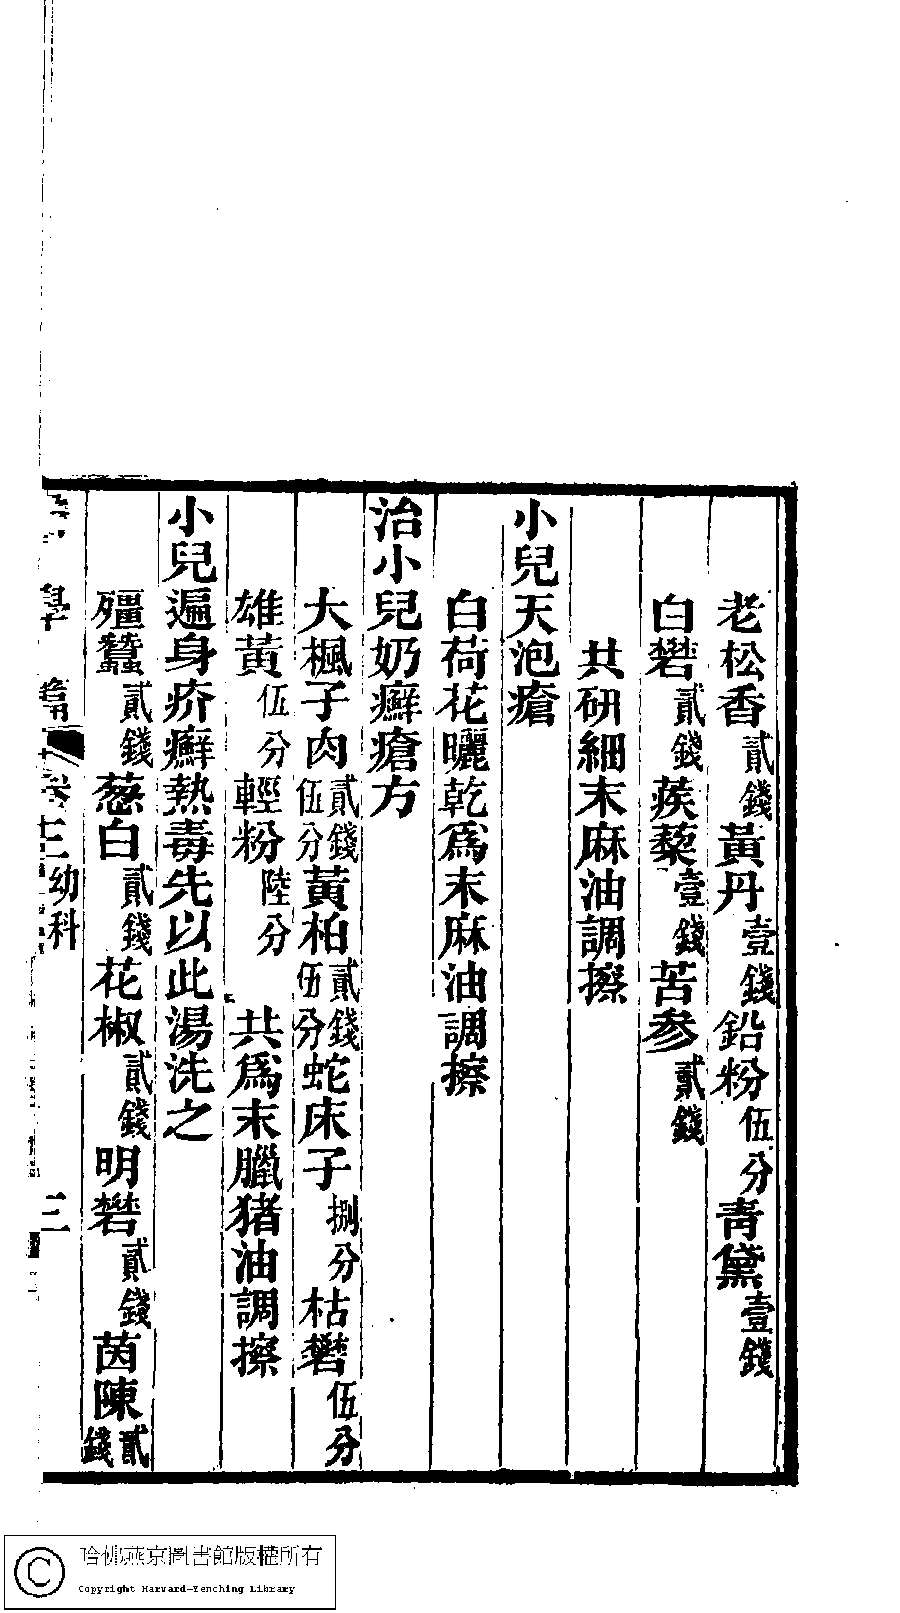 老松香貳錢黃丹壹錢鉛粉伍分青黛壹錢
白礬貳錢蒺藜壹錢苦参貳錢
共研細末麻油調擦
小兒天泡瘡
白荷花曬乾為末麻油調擦
治小兒奶癬瘡方
大楓子肉貳錢伍分黃柏貳錢伍分蛇床子捌分枯礬伍分
雄黃伍分輕粉陸分 共為末臘猪油調擦
小兒遍身疥癬熱毒先以此湯洗之
殭蠶貳錢葱白貳錢花椒貳錢明礬貳錢茵陳貳錢
學 卷 幼科 三
哈佛燕京圖書館版權所有
Copyright Harvard-Yenching Library